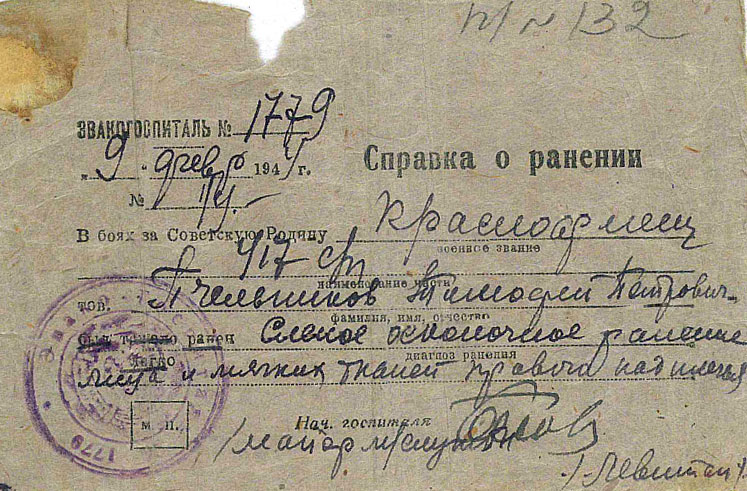 п/п 132
ЭВАКОГОСПИТАЛЬ № 1779
„ 9 " февр 194 г.
Справка о ранении
№
В боях за Советскую Родину Красноармеец
военное звание
417 сп
наименование части
тов. Пчельников Тимофей Петрович
фамилия, имя, отчество
Был тяжело ранен Слепое осколочное ранение
легко
диагноз ранения
лица и мягких тканей правого надплечья
М. П.
Нач. госпиталя
/майор м/службы
/Левитан/
1779